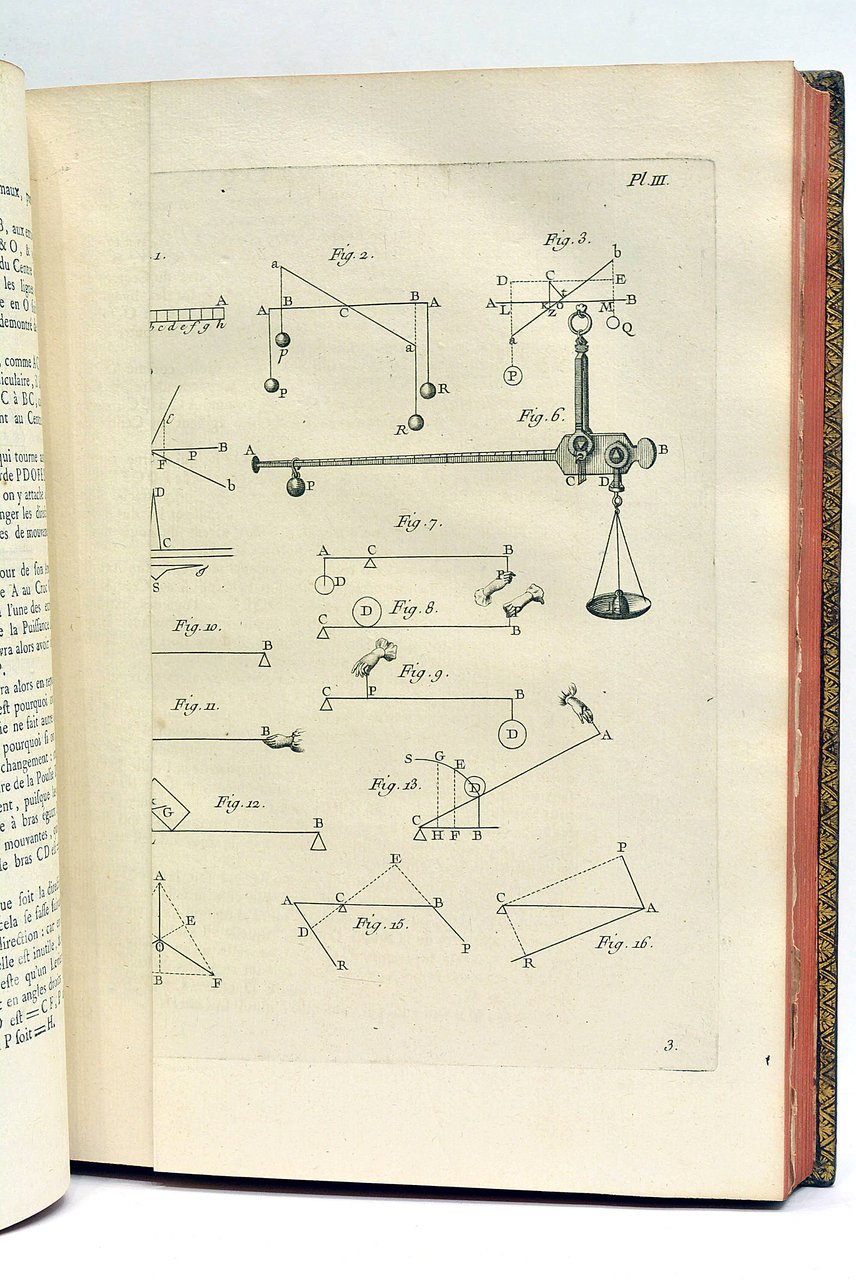 maux,
B, aux
& O, &
du Centre
les lignes
e en O
démontré
, comme
iculaire,
C à BC,
nt au
qui tourne
rde PDOFE
on y attache
nger les
es de
our de ſon
e A au
l'une des
e la Puiſſance
vra alors avoir
P.
ra alors en
eſt pourquoi
ie ne fait autre
pourquoi ſi
changement :
re de la
ent, puiſque
e à bras
mouvantes,
le bras CD eſt
ue ſoit la
cela ſe faſſe
direction : car
elle eſt inutile,
eſte qu'un
t en angles droits
O eſt = CF,
P ſoit = H.
Pl. III.
1.
A
b c d e f g h
Fig. 2.
a
A B C B A
a
p
P
R
R
Fig. 3.
b
D C E
A L K Z o t M B
a
Q
P
ε
F P B
b
D
C
S
g
Fig. 6.
A P C D B
Fig. 7.
A C B
D P
Fig. 8.
D
C P B
Fig. 9.
C P B
D
Fig. 10.
B
Fig. 11.
B
Fig. 12.
G
B
Fig. 13.
S G E D A
C H F B
A
E
O
B F
Fig. 15.
E
A C B
D
R P
Fig. 16.
P
C A
R
3.